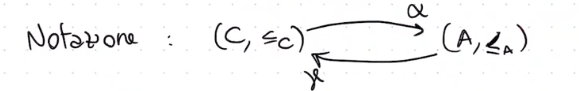 Notazione : (C, ≤c) α (A, ≤A)
γ